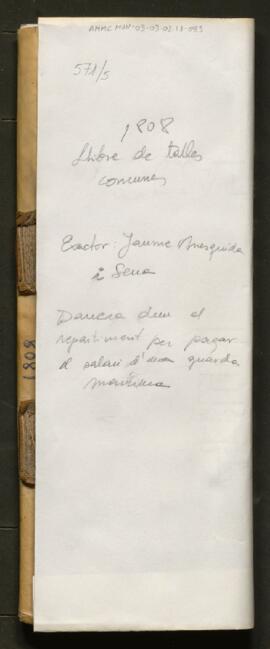 AHMC MAN-03-03-02.13-093
571/5
1808
Llibre de talles
comunes
Exactor: Jaume Amesquida
i Serra
Darrera diu el
repartiment per pagar
el salari d'una guarda
marítima
1808